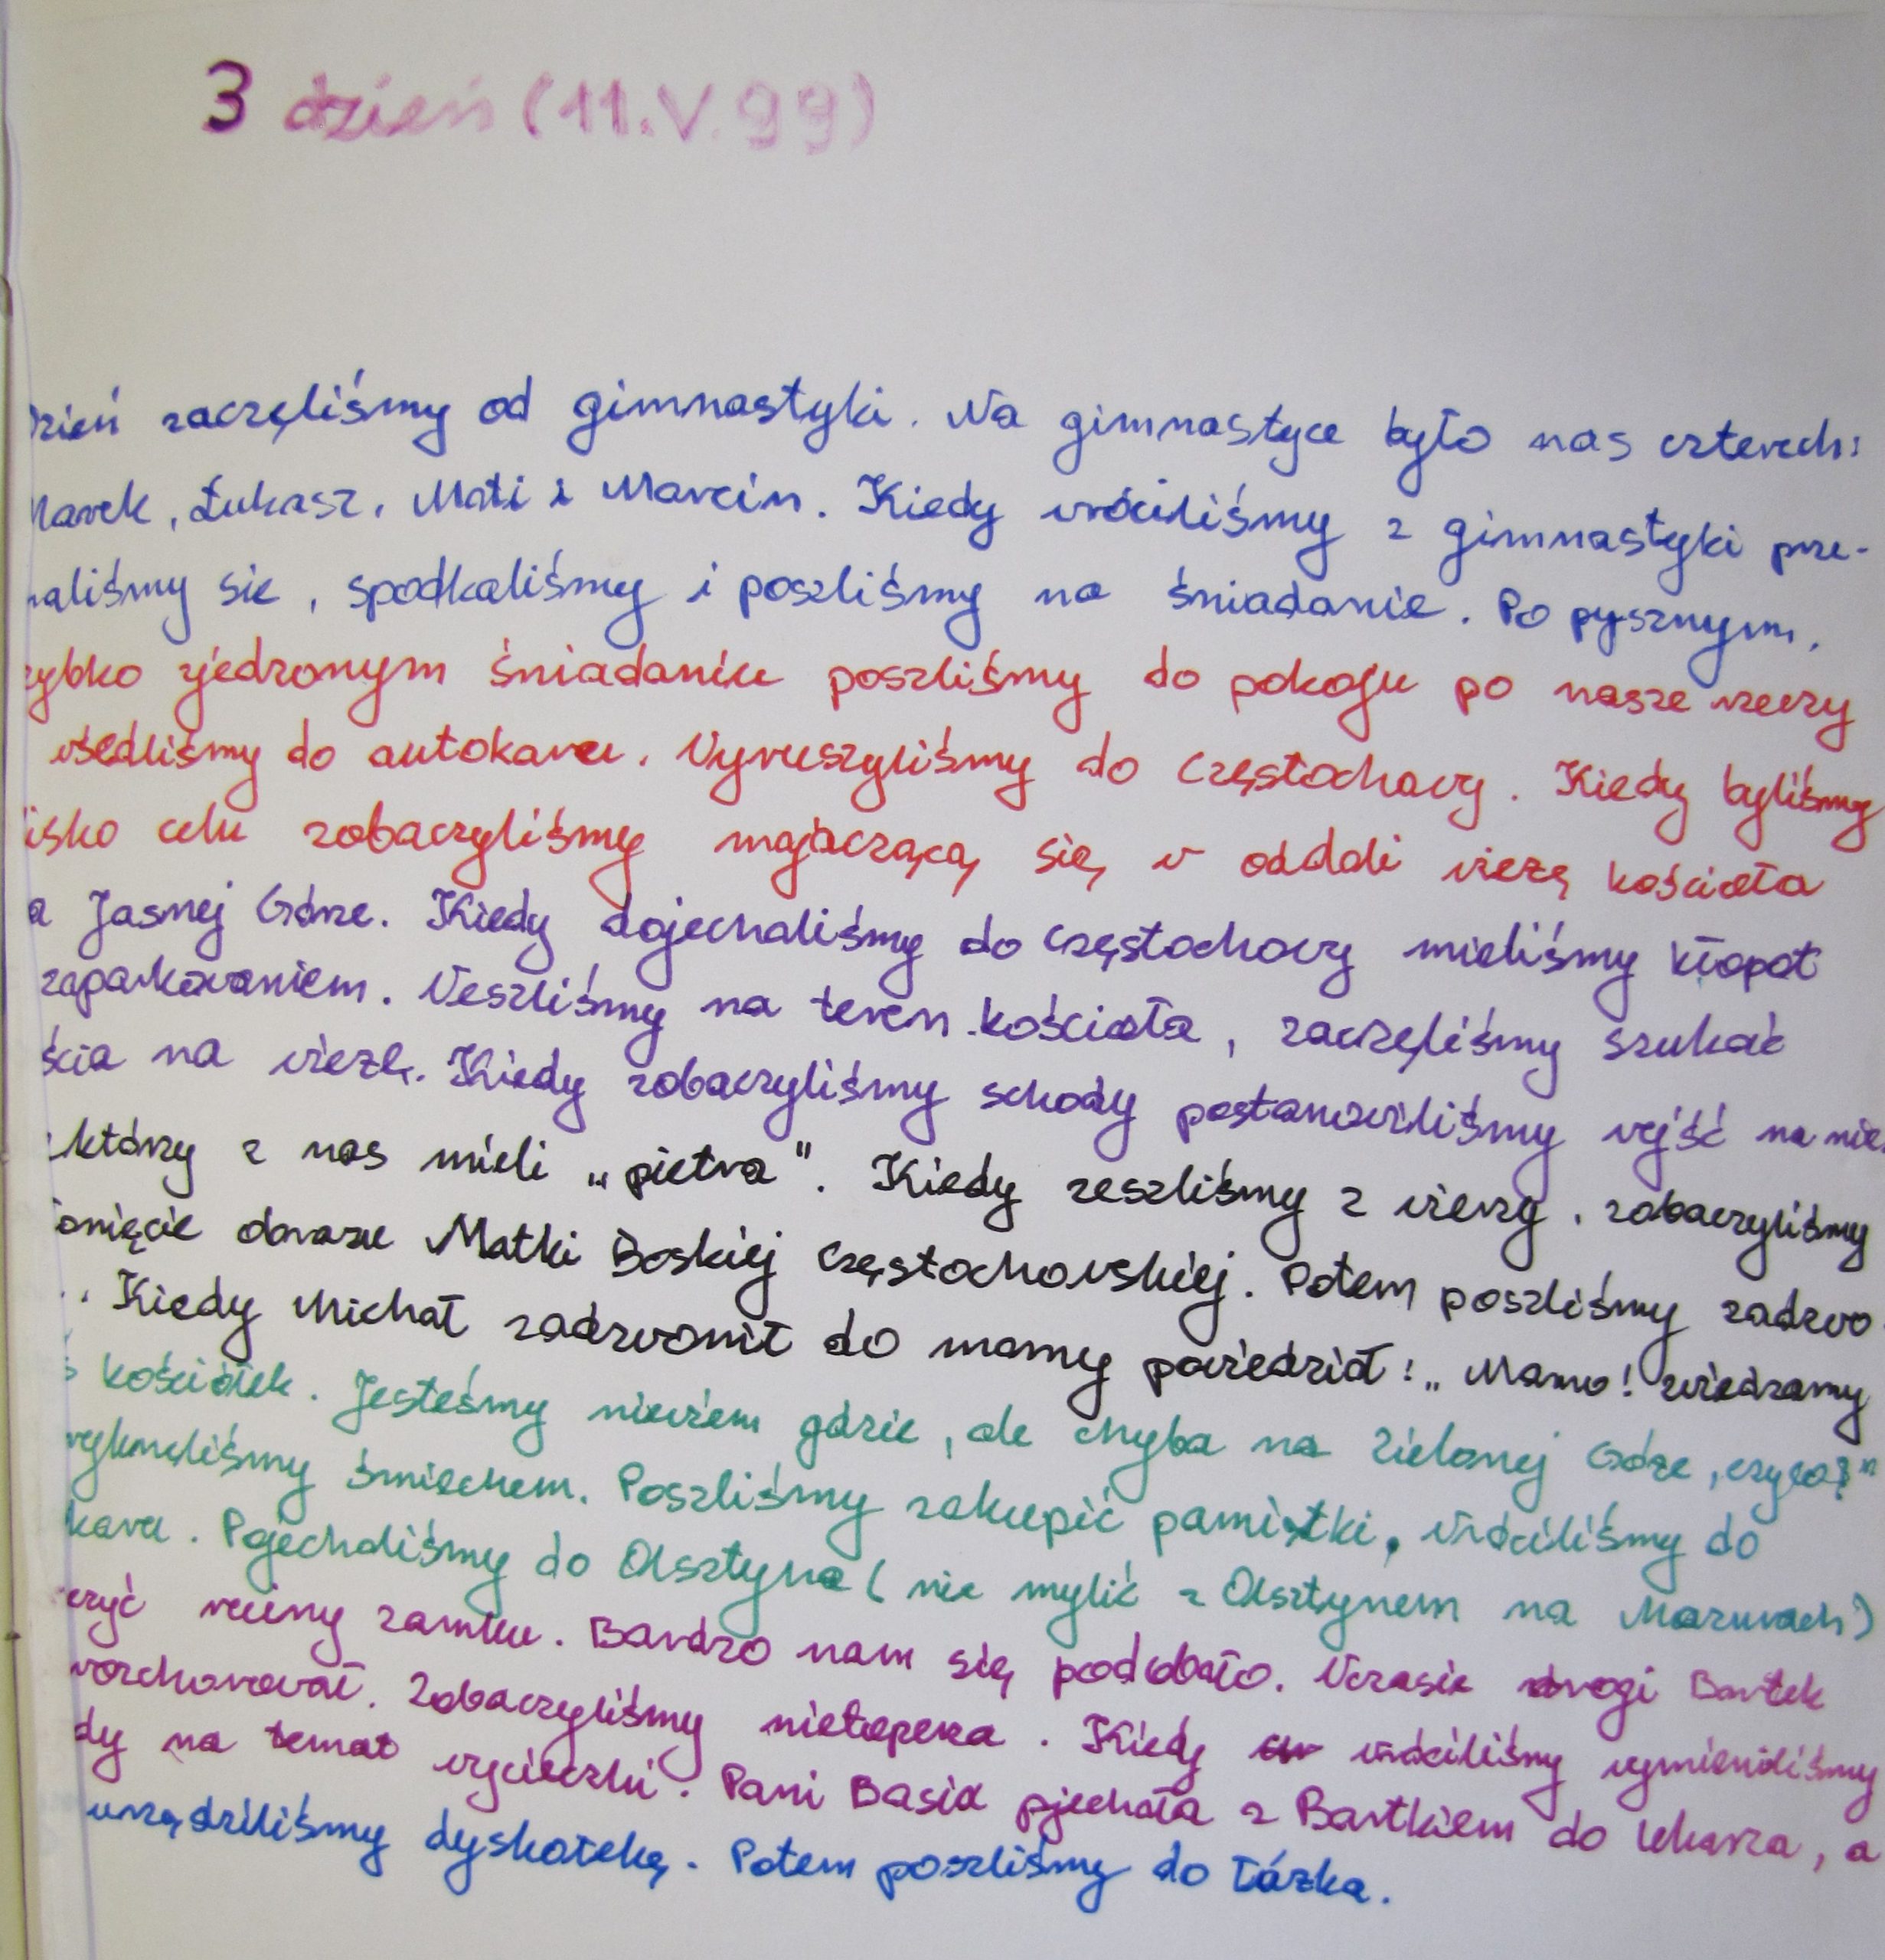 3 dzień (11.V.99)
Dzień zaczęliśmy od gimnastyki. Na gimnastyce było nas czterech:
Marek, Łukasz, Mati i Marcin. Kiedy wróciliśmy z gimnastyki prze-
haliśmy sie, spodkaliśmy i poszliśmy na śniadanie. Po pysznym,
zybko zjedzonym śniadaniu poszliśmy do pokoju po nasze rzeczy
wsedliśmy do autokaru. Wyruszyliśmy do Częstochowy. Kiedy byliśmy
isko celu zobaczyliśmy majaczącą się w oddali wieżę kościoła
a Jasnej Górze. Kiedy dojechaliśmy do Częstochowy mieliśmy kłopot
zaparkowaniem. Weszliśmy na teren kościoła, zaczęliśmy szukać
ścia na wieżę. Kiedy zobaczyliśmy schody postanowiliśmy wejść na nie.
którzy z nas mieli „pietra". Kiedy zeszliśmy z wieży, zobaczyliśmy
onięcie obrazu Matki Boskiej Częstochowskiej. Potem poszliśmy zadzwo
. Kiedy Michał zadzwonił do mamy powiedział: „Mamo! zwiedzamy
ś kościółek. Jesteśmy niewiem gdzie, ale chyba na Zielonej Górze, czy co?"
ybuchneliśmy śmiechem. Poszliśmy zakupić pamiątki, wróciliśmy do
karu. Pojechaliśmy do Olsztyna (nie mylić z Olsztynem na Mazurach)
czyć ruiny zamku. Bardzo nam się podobało. Wczasie drogi Bartek
zachorował. Zobaczyliśmy nietopeza. Kiedy wróciliśmy wymieniliśmy
dy na temat wycieczki. Pani Basia pjechała z Bartkiem do lekarza, a
urządziliśmy dyskotekę. Potem poszliśmy do łóżka.